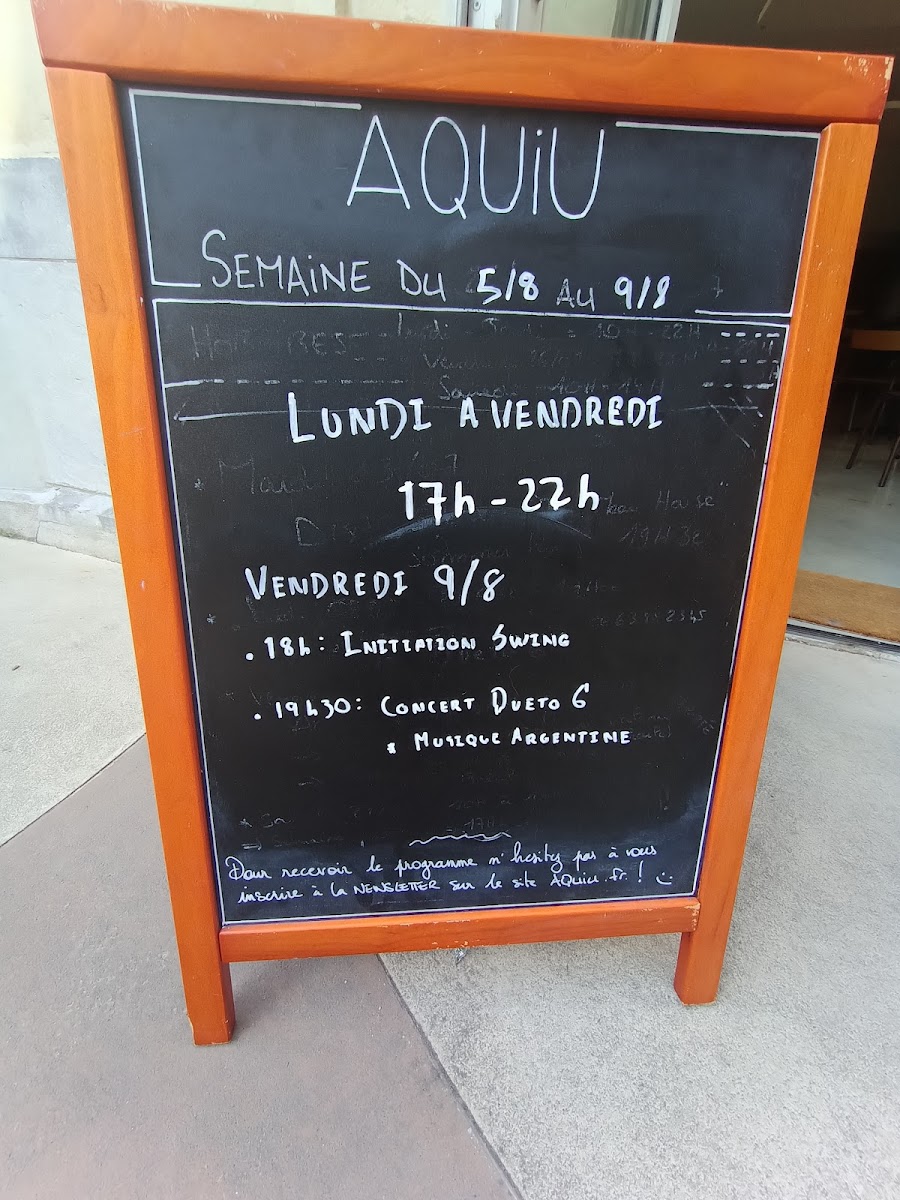 AQUIU
SEMAINE DU 5/8 AU 9/8
LUNDI A VENDREDI
17h - 22h
VENDREDI 9/8
. 18h : INITIATION SWING
. 19h30 : CONCERT DUETO 6
* MUSIQUE ARGENTINE
Pour recevoir le programme n'hésitez pas à vous
inscrire à la NEWSLETTER sur le site AQUIU.fr. ! :)